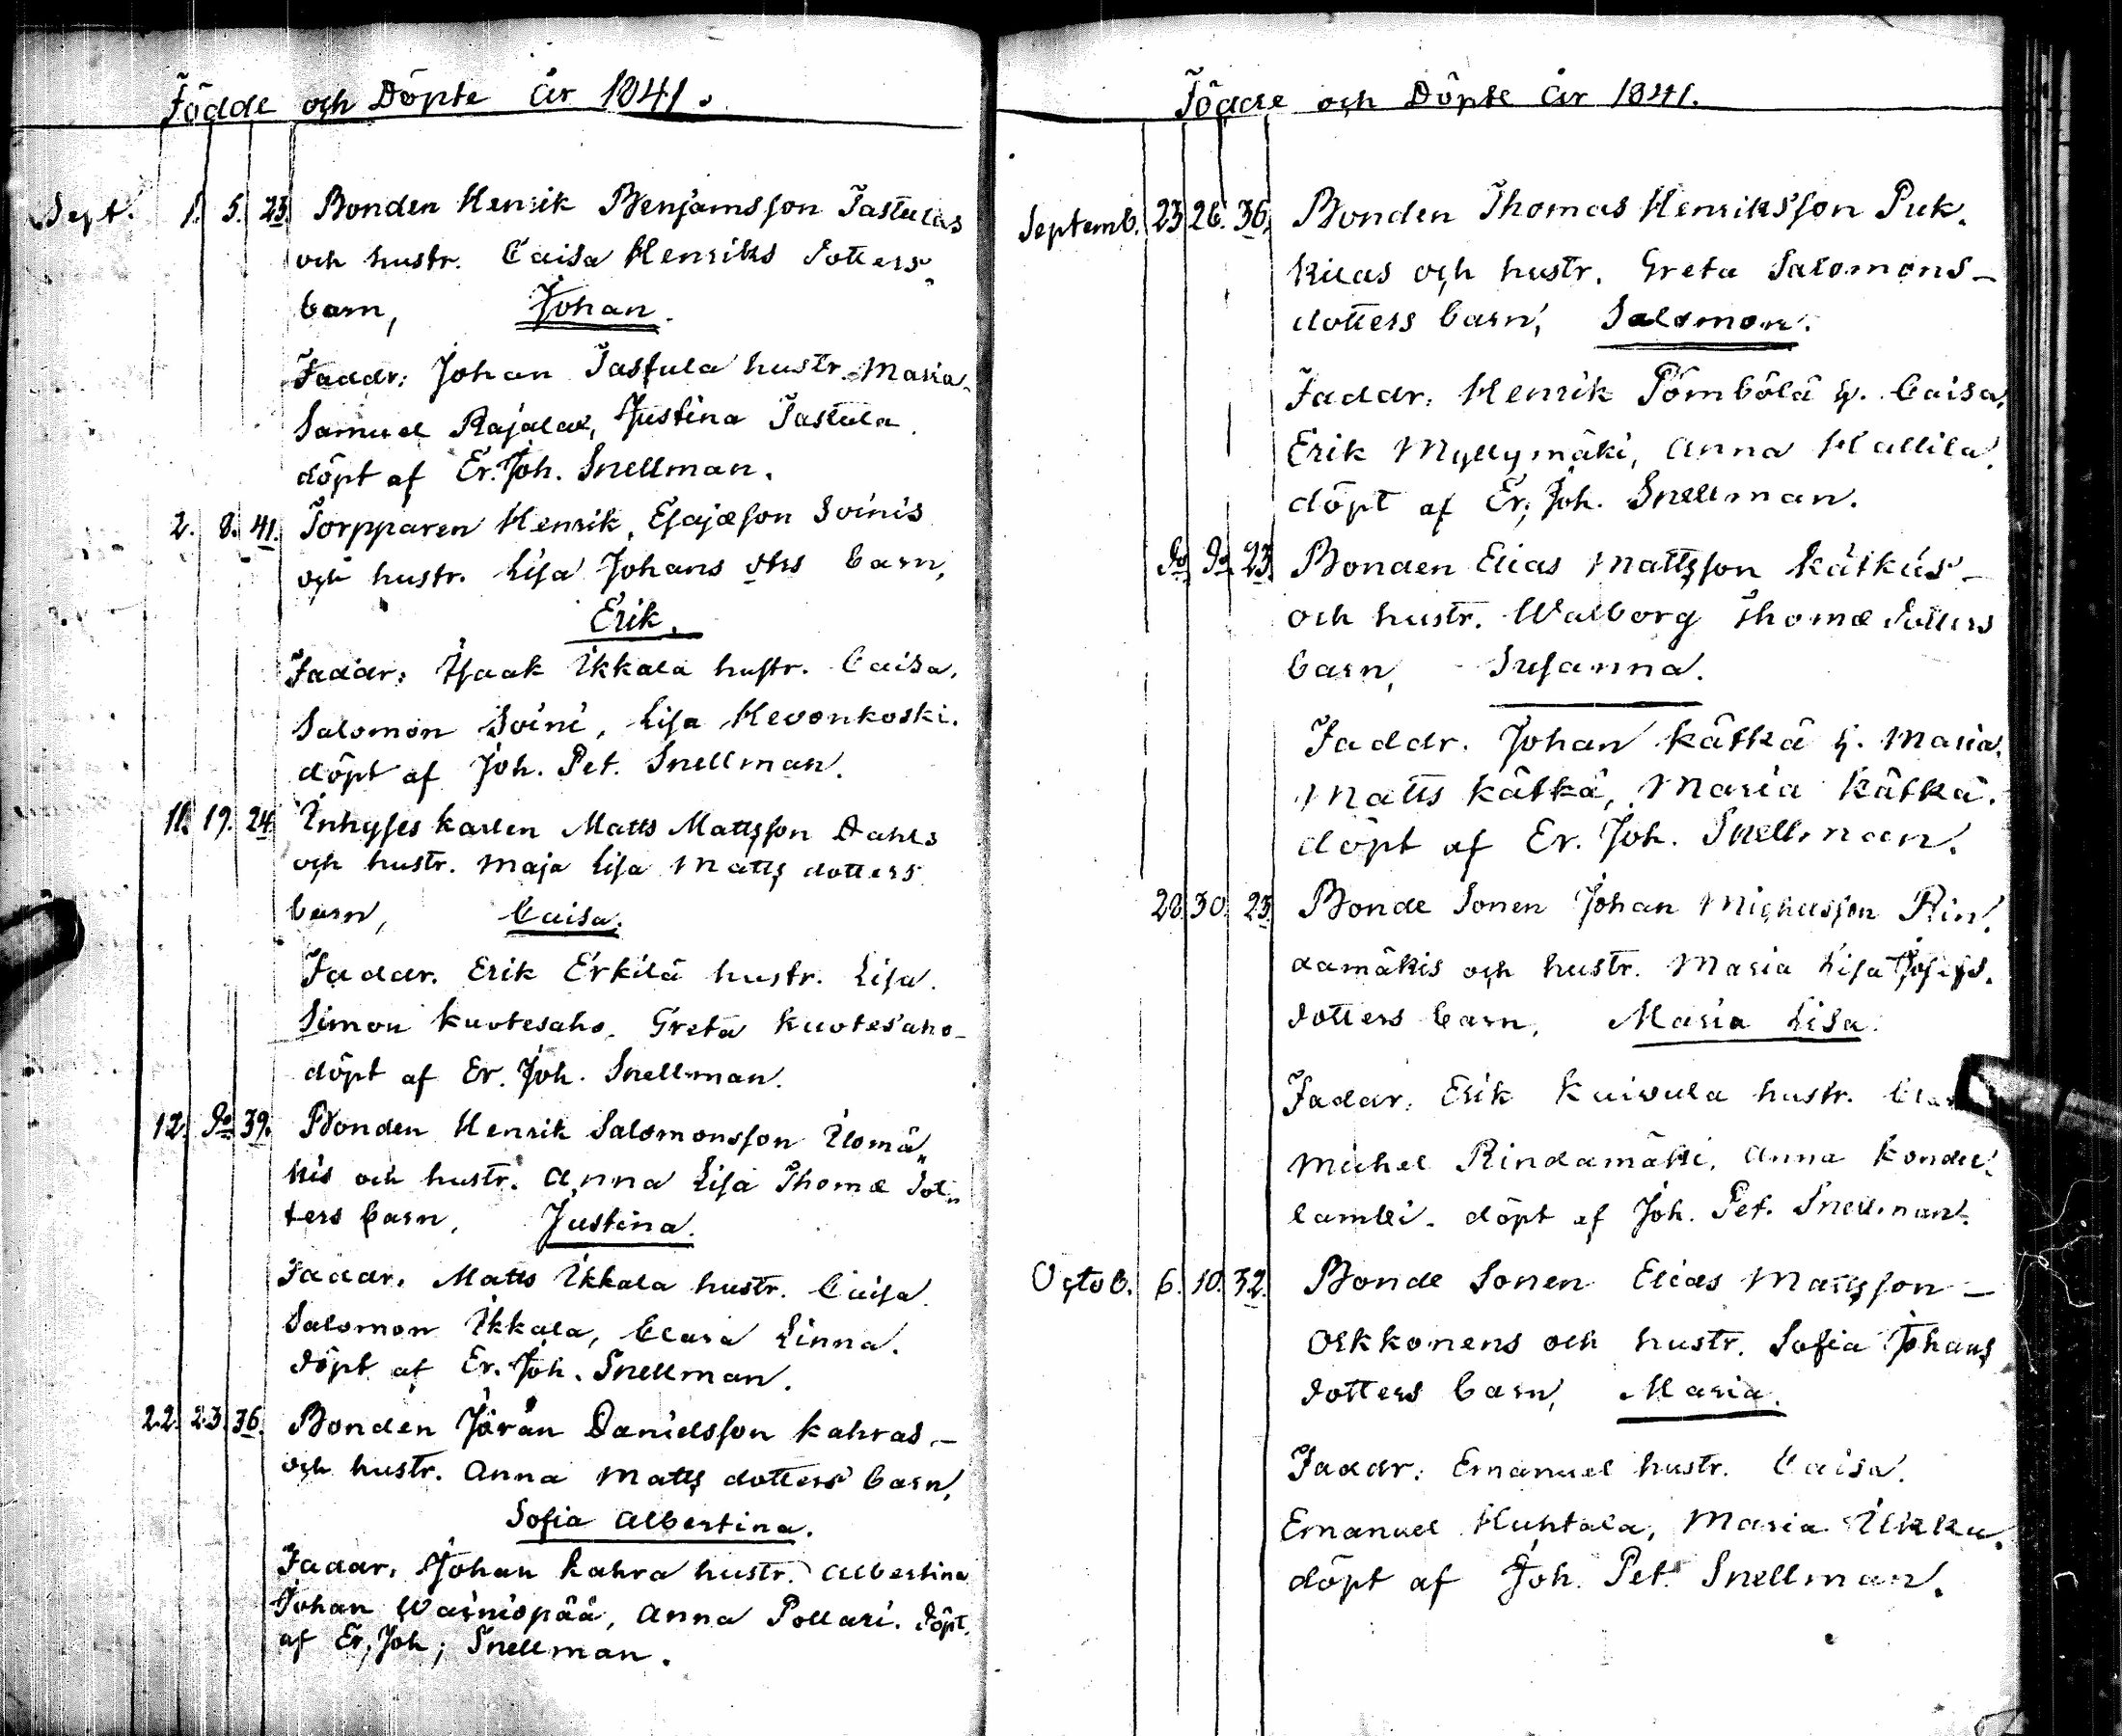 Födde och Döpte år 1841.
Sept. 1. 5. 23. Bonden Henrik Benjamsson Tastulas
och hustr. Caisa Henriks dotters
barn, Johan.
Faddr: Johan Tastula hustr. Maria
Samuel Rajala, Justina Tastula
döpt af Er. Joh. Snellman.
2. 8. 41. Torpparen Henrik Esajæson Soinis
och hustr. Lisa Johans dtrs barn,
Erik.
Faddr: Isaak Ikkala hustr. Caisa,
Salomon Soini, Lisa Hevonkoski.
döpt af Joh. Pet. Snellman.
11. 19. 24. Inhyses karlen Matts Mattsson Dahls
och hustr. Maja Lisa Matts dotters
barn, Caisa.
Faddr. Erik Erkilä hustr. Lisa.
Simon Kuotesaho. Greta Kuotesaho
döpt af Er. Joh. Snellman.
12. Do 39. Bonden Henrik Salomonsson Ilomä„
kis och hustr. Anna Lisa Thomæ dot„
ters barn, Justina.
Faddr. Matts Ikkala hustr. Caisa
Salomon Ikkala, Clara Linna.
döpt af Er. Joh. Snellman.
22. 23. 36. Bonden Jöran Danielsson Kahras –
och hustr. Anna Matts dotters barn,
Sofia Albertina.
Faddr. Johan Kahra hustr. Albertina
Johan Wainiopää, Anna Pollari. döpt
af Er, Joh; Snellman.
Födde och Döpte år 1841.
Septemb. 23 26. 36. Bonden Thomas Henriksson Puk.
kilas och hustr. Greta Salomons –
dotters barn, Salomon.
Faddr. Henrik Pömbölä h. Caisa,
Erik Myllymäki, Anna Hallila.
döpt af Er, Joh. Snellman.
Do Do 23. Bonden Elias Mattsson Kätkäs –
och hustr. Walborg Thomæ dotters
barn, Susanna.
Faddr. Johan Kätkä h. Maria.
Matts Kätkä, Maria Kätkä.
döpt af Er. Joh. Snellman.
28 30 23 Bonde Sonen Johan Michelsson Rin
damäkis och hustr. Maria Lisa Josefs.
dotters barn, Maria Lisa.
Faddr. Erik Kuivula hustr.
Michel Rindamäki, Anna
döpt af Joh. Pet. Snellman.
Octob. 6. 10. 32. Bonde Sonen Elias Mattsson –
Olkkonens och hustr. Sofia Johans
dotters barn, Maria.
Faddr. Emanuel hustr. Caisa.
Emanuel Huhtala, Maria Ukku.
döpt af Joh. Pet. Snellman.